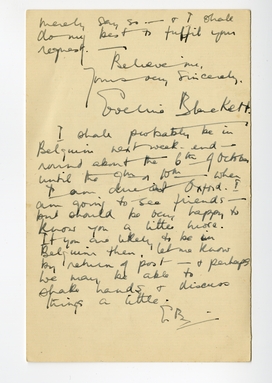 merely say so — & I shall
do my best to fulfil your
request.
Believe me,
Yours very sincerely,
Evelin Blackett.
I shall probably be in
Belguim next week-end —
round about the 6th of October
until the 10th — when
I am due at Oxford. I
am going to see friends —
but should be very happy to
know you a little more.
If you are likely to be in
Belguim then, let me know
by return of post — & perhaps
we may be able to
shake hands & discuss
things a little.
EB —